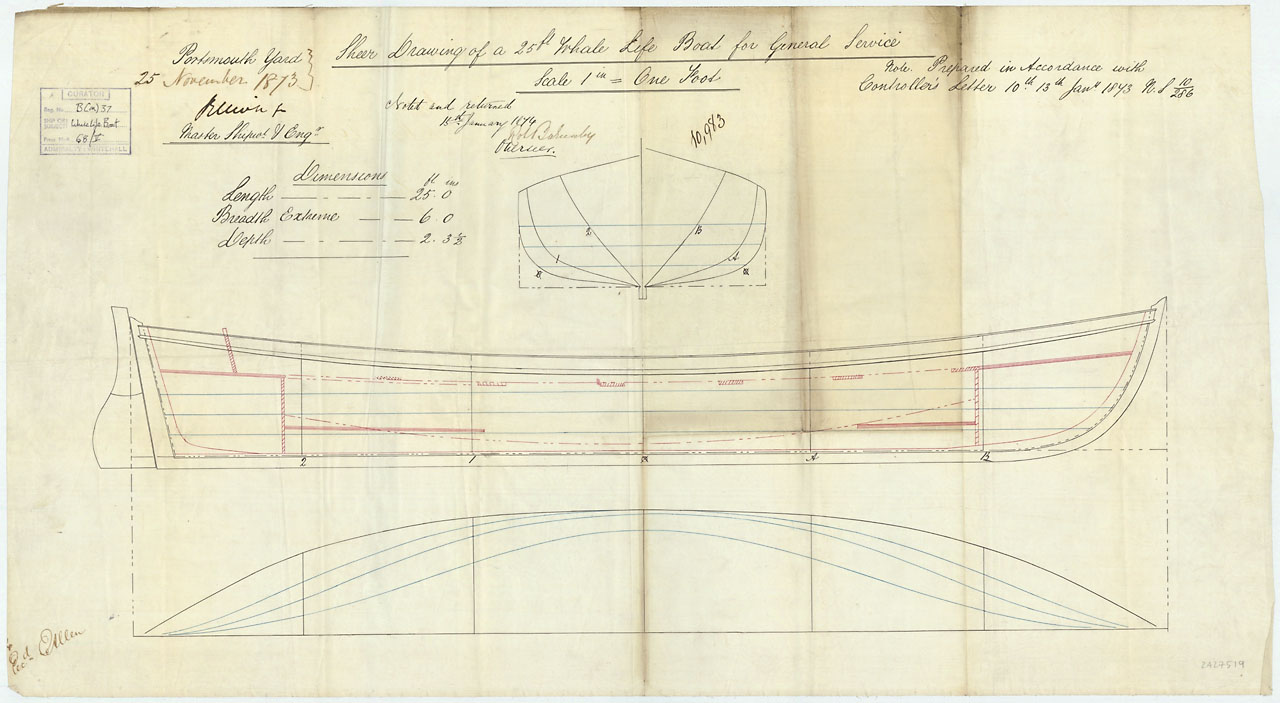 Portsmouth Yard
25 November 1873
Master Shipt & Engr
Sheer Drawing of a 25ft Whale Life Boat for General Service
Scale 1 in = One Foot
Note. Prepared in Accordance with
Controller's Letter 10th 13th Jany 1873 N S 10/286
Noted and returned
15th January 1874
10,983
CURATOR
Reg. No. B(w)37
SHIP OR SUBJECT Whale Life Boat
68/I
ADMIRALTY
Dimensions
ft ins
Length 25. 0
Breadth Extreme 6. 0
Depth 2. 3 1/2
2 B
1 A
2 1 A B
Allen
2A27519